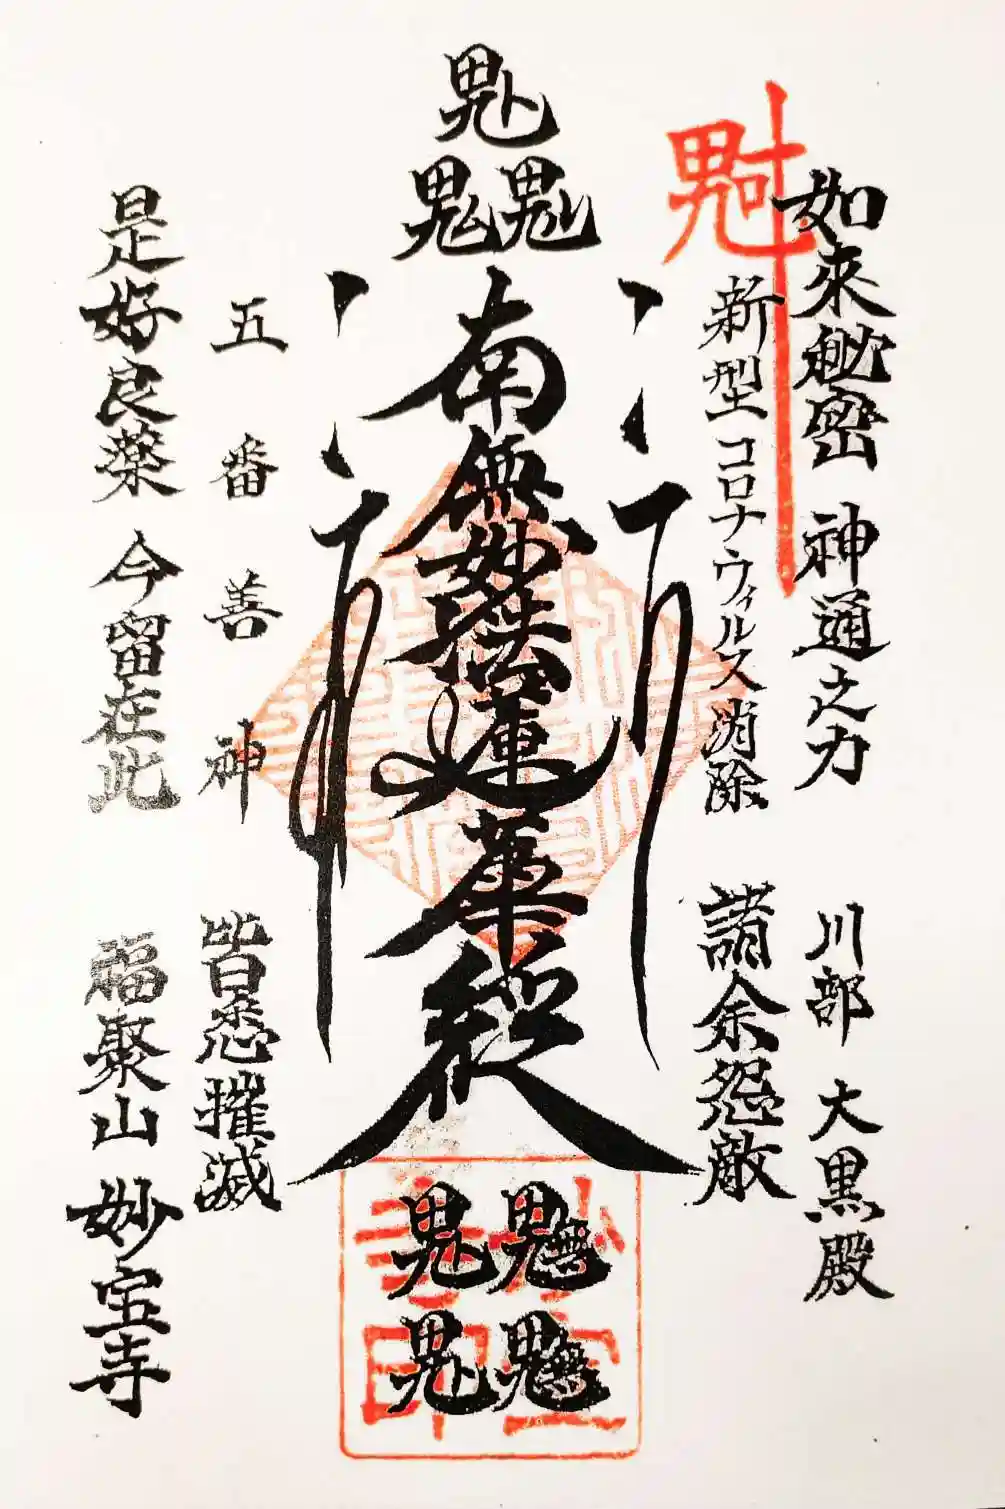 如来秘密 神通之力
川部 大黒殿
新型コロナウィルス消除
諸余怨敵
南無妙法蓮華経
五番善神
皆悉摧滅
是好良薬 今留在此
福聚山 妙宝寺